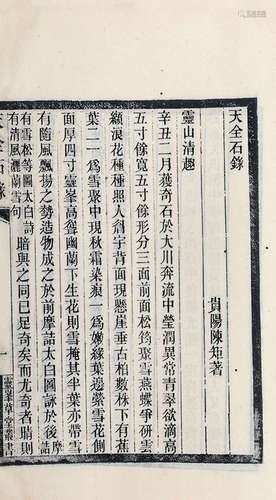 天全石錄
貴陽陳矩著
靈山清趣
辛丑二月獲奇石於大川奔流中瑩潤異常青翠欲滴高
五寸餘寬五寸餘形分三面前面松筠聚雪燕蝶爭研雲
纈浪花種種照人劍宇背面現懸崖垂古柏數株下有蕉
葉二一爲雪聚中現秋霜染痕一爲嫩綠葉邊縈雪花側
面厚四寸靈峯高聳幽蘭下生花則雪掩其半葉亦帶雪
有隨風飄揚之勢造物成之於前摩詰太白圖詠於後摩詰
有雪松等圖太白詩
有清風灑蘭雪句
暗與之同已足奇矣而尤奇者睄則
天全石錄
一
靈峯草堂叢書